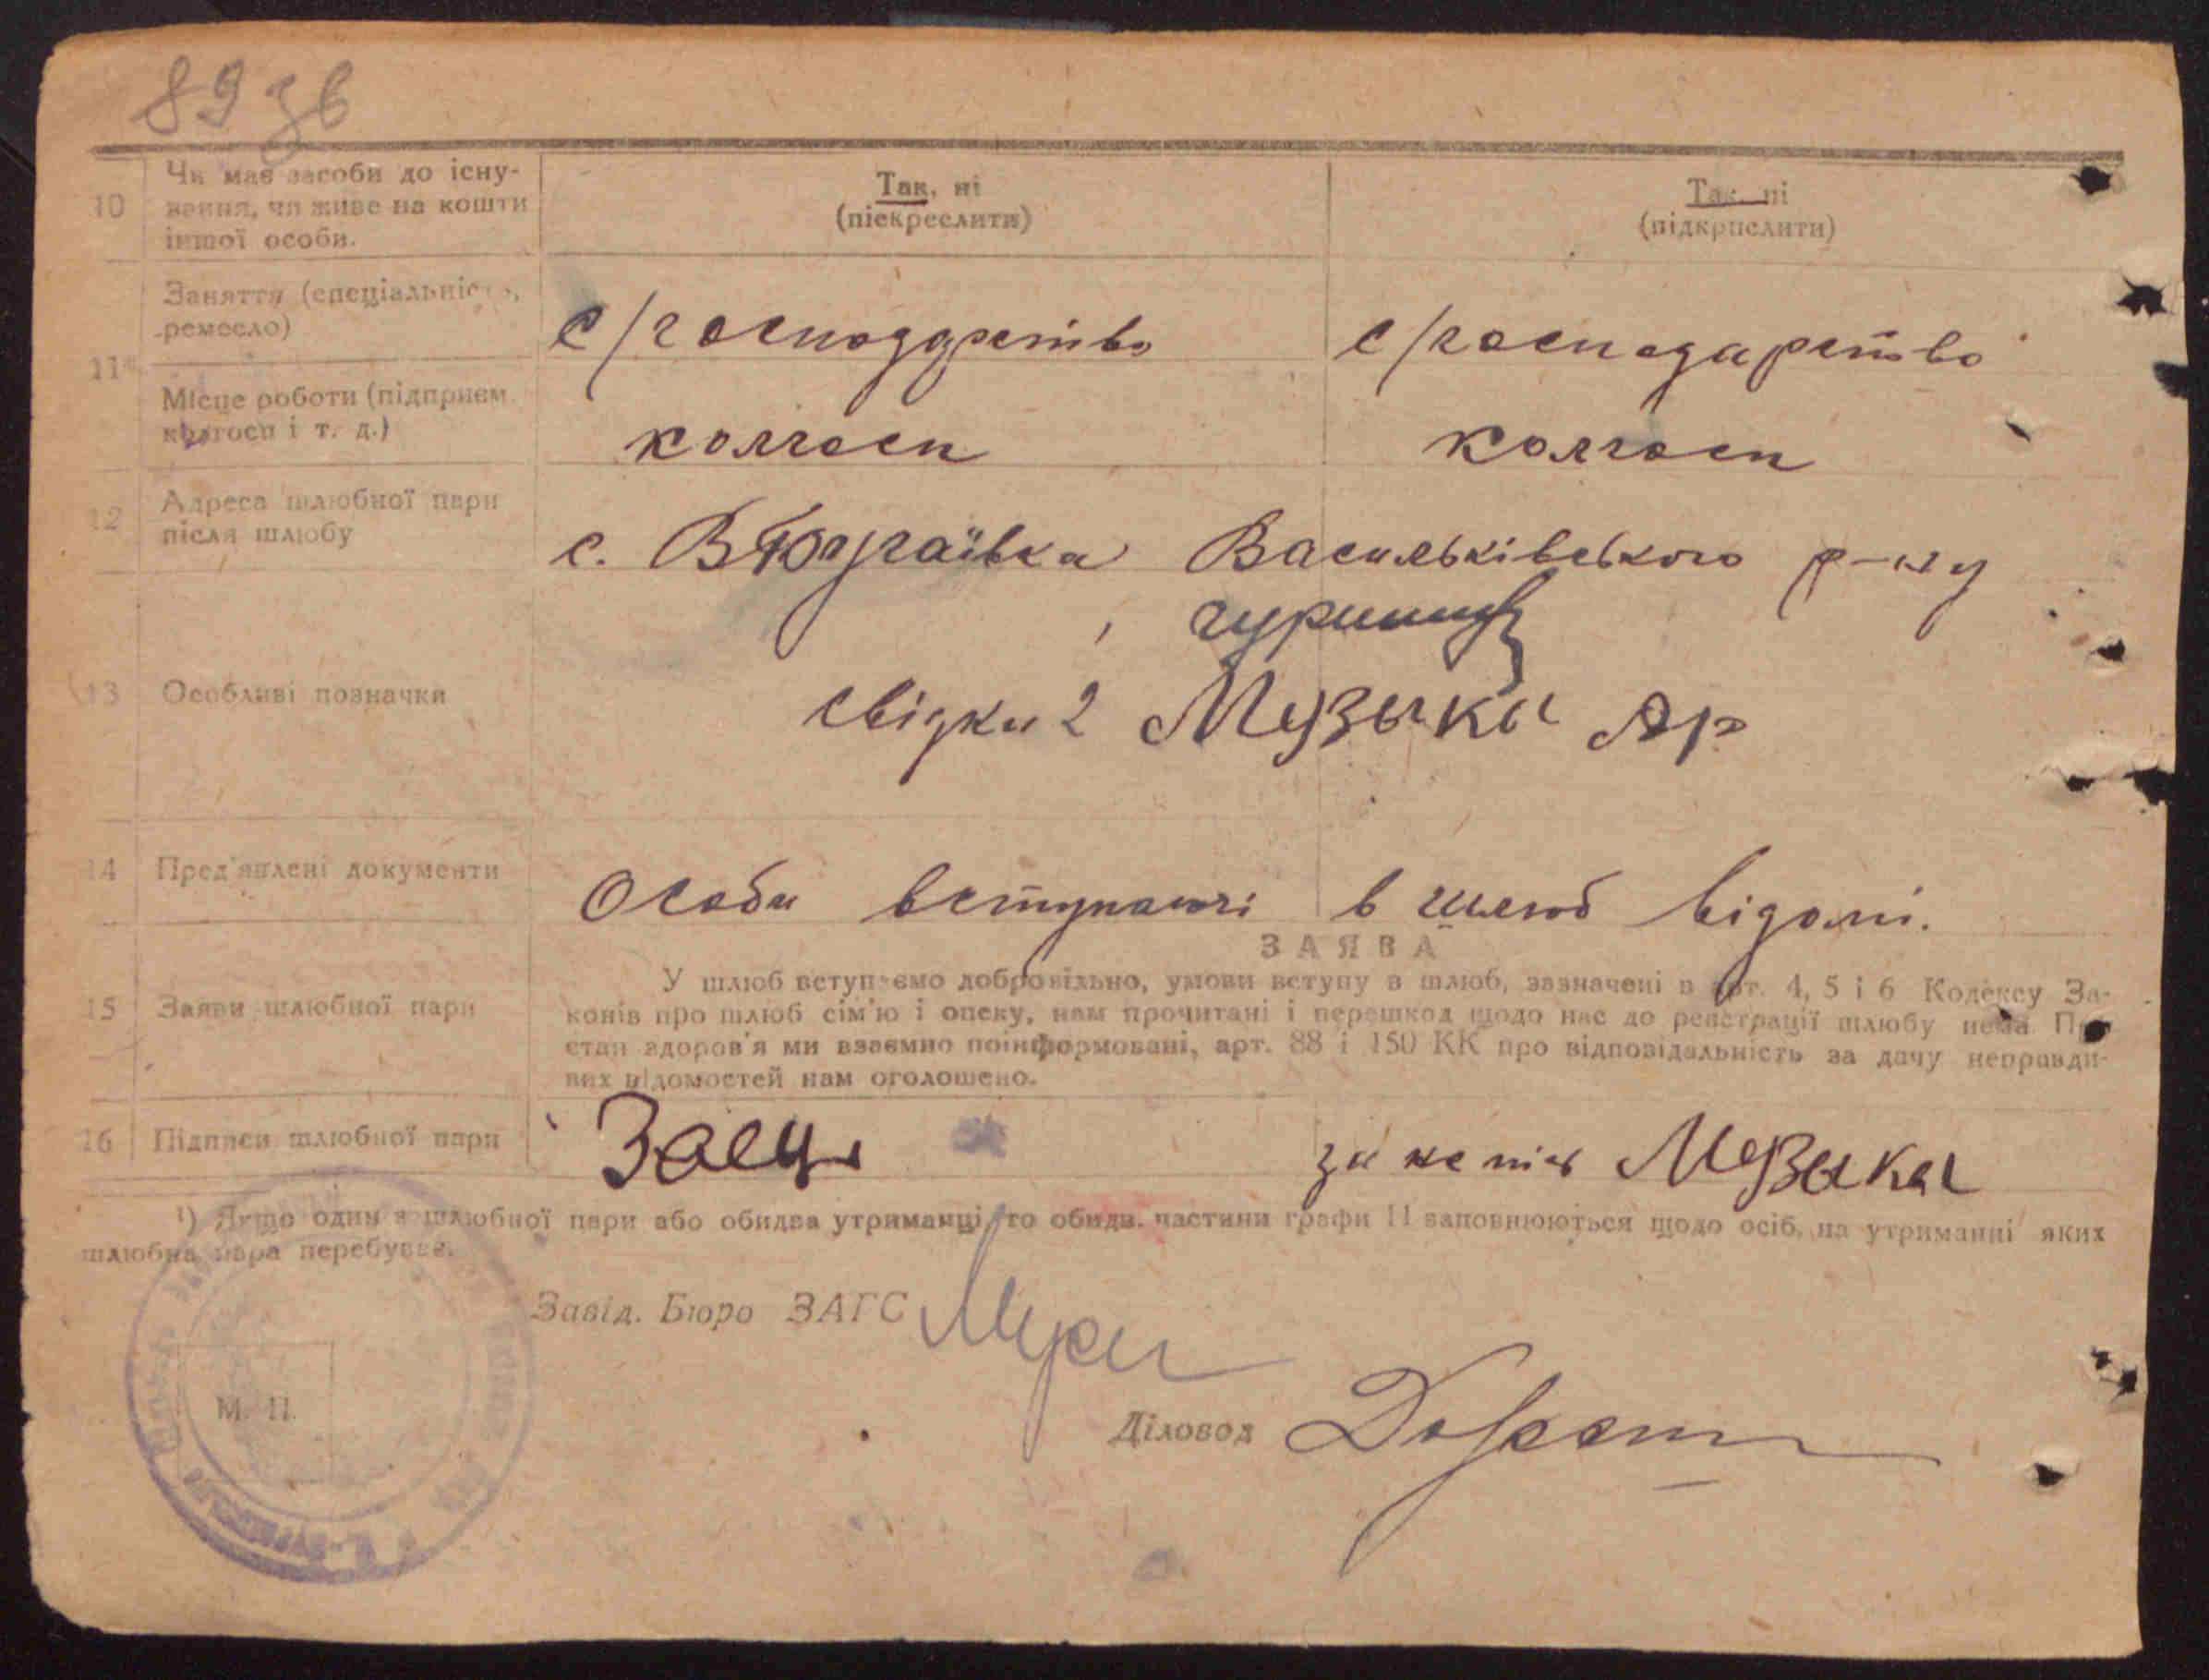 89 зв
10 Чи має засоби до існу-
вання, чи живе на кошти
іншої особи.
Так, ні
(піскреслити)
Так, ні
(підкрислити)
11
Заняття (спеціальність,
ремесло)
с/господарство
с/господарство
Місце роботи (підприєм.
колгосп і т. д.)
колгосп
колгосп
12 Адреса шлюбної пари
після шлюбу
с. Васильківського р-ну
13 Особливі позначки
свідки 2 Музыка Яр
14 Пред'явлені документи
Особи вступаючі в шлюб відомі.
15 Заяви шлюбної пари
ЗАЯВА
У шлюб вступаємо добровільно, умови вступу в шлюб, зазначені в арт. 4, 5 і 6 Кодексу За-
конів про шлюб сім'ю і опеку, нам прочитані і перешкод щодо нас до реєстрації шлюбу нема Про
стан здоров'я ми взаємно поінформовані, арт. 88 і 150 КК про відповідальність за дачу неправди-
вих відомостей нам оголошено.
16 Підписи шлюбної пари
Заець
за непис Музыка
¹) Якщо один з шлюбної пари або обидва утриманці, то обидв. частини графи 11 заповнюються щодо осіб, на утриманні яких
шлюбна пара перебуває.
Завід. Бюро ЗАГС
М. П.
Діловод